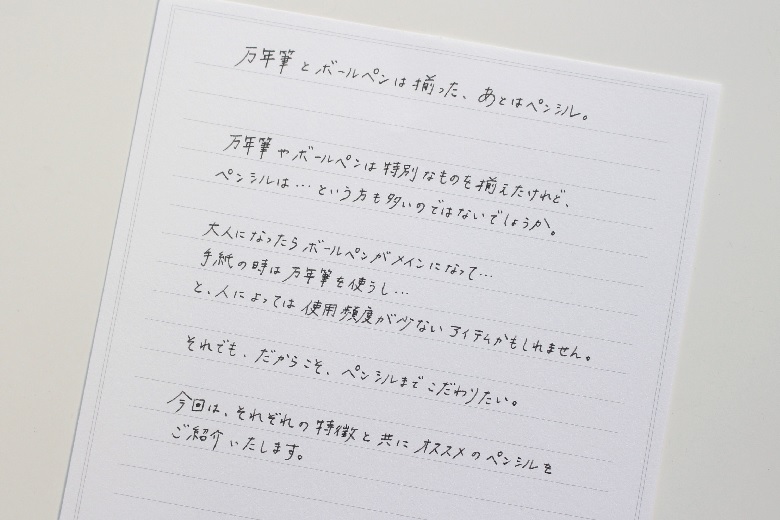 万年筆とボールペンは揃った、あとはペンシル。
万年筆やボールペンは特別なものを揃えたけれど、
ペンシルは…という方も多いのではないでしょうか。
大人になったらボールペンがメインになって…
手紙の時は万年筆を使うし…
と、人によっては使用頻度が少ないアイテムかもしれません。
それでも、だからこそ、ペンシルまでこだわりたい。
今回は、それぞれの特徴と共にオススメのペンシルを
ご紹介いたします。